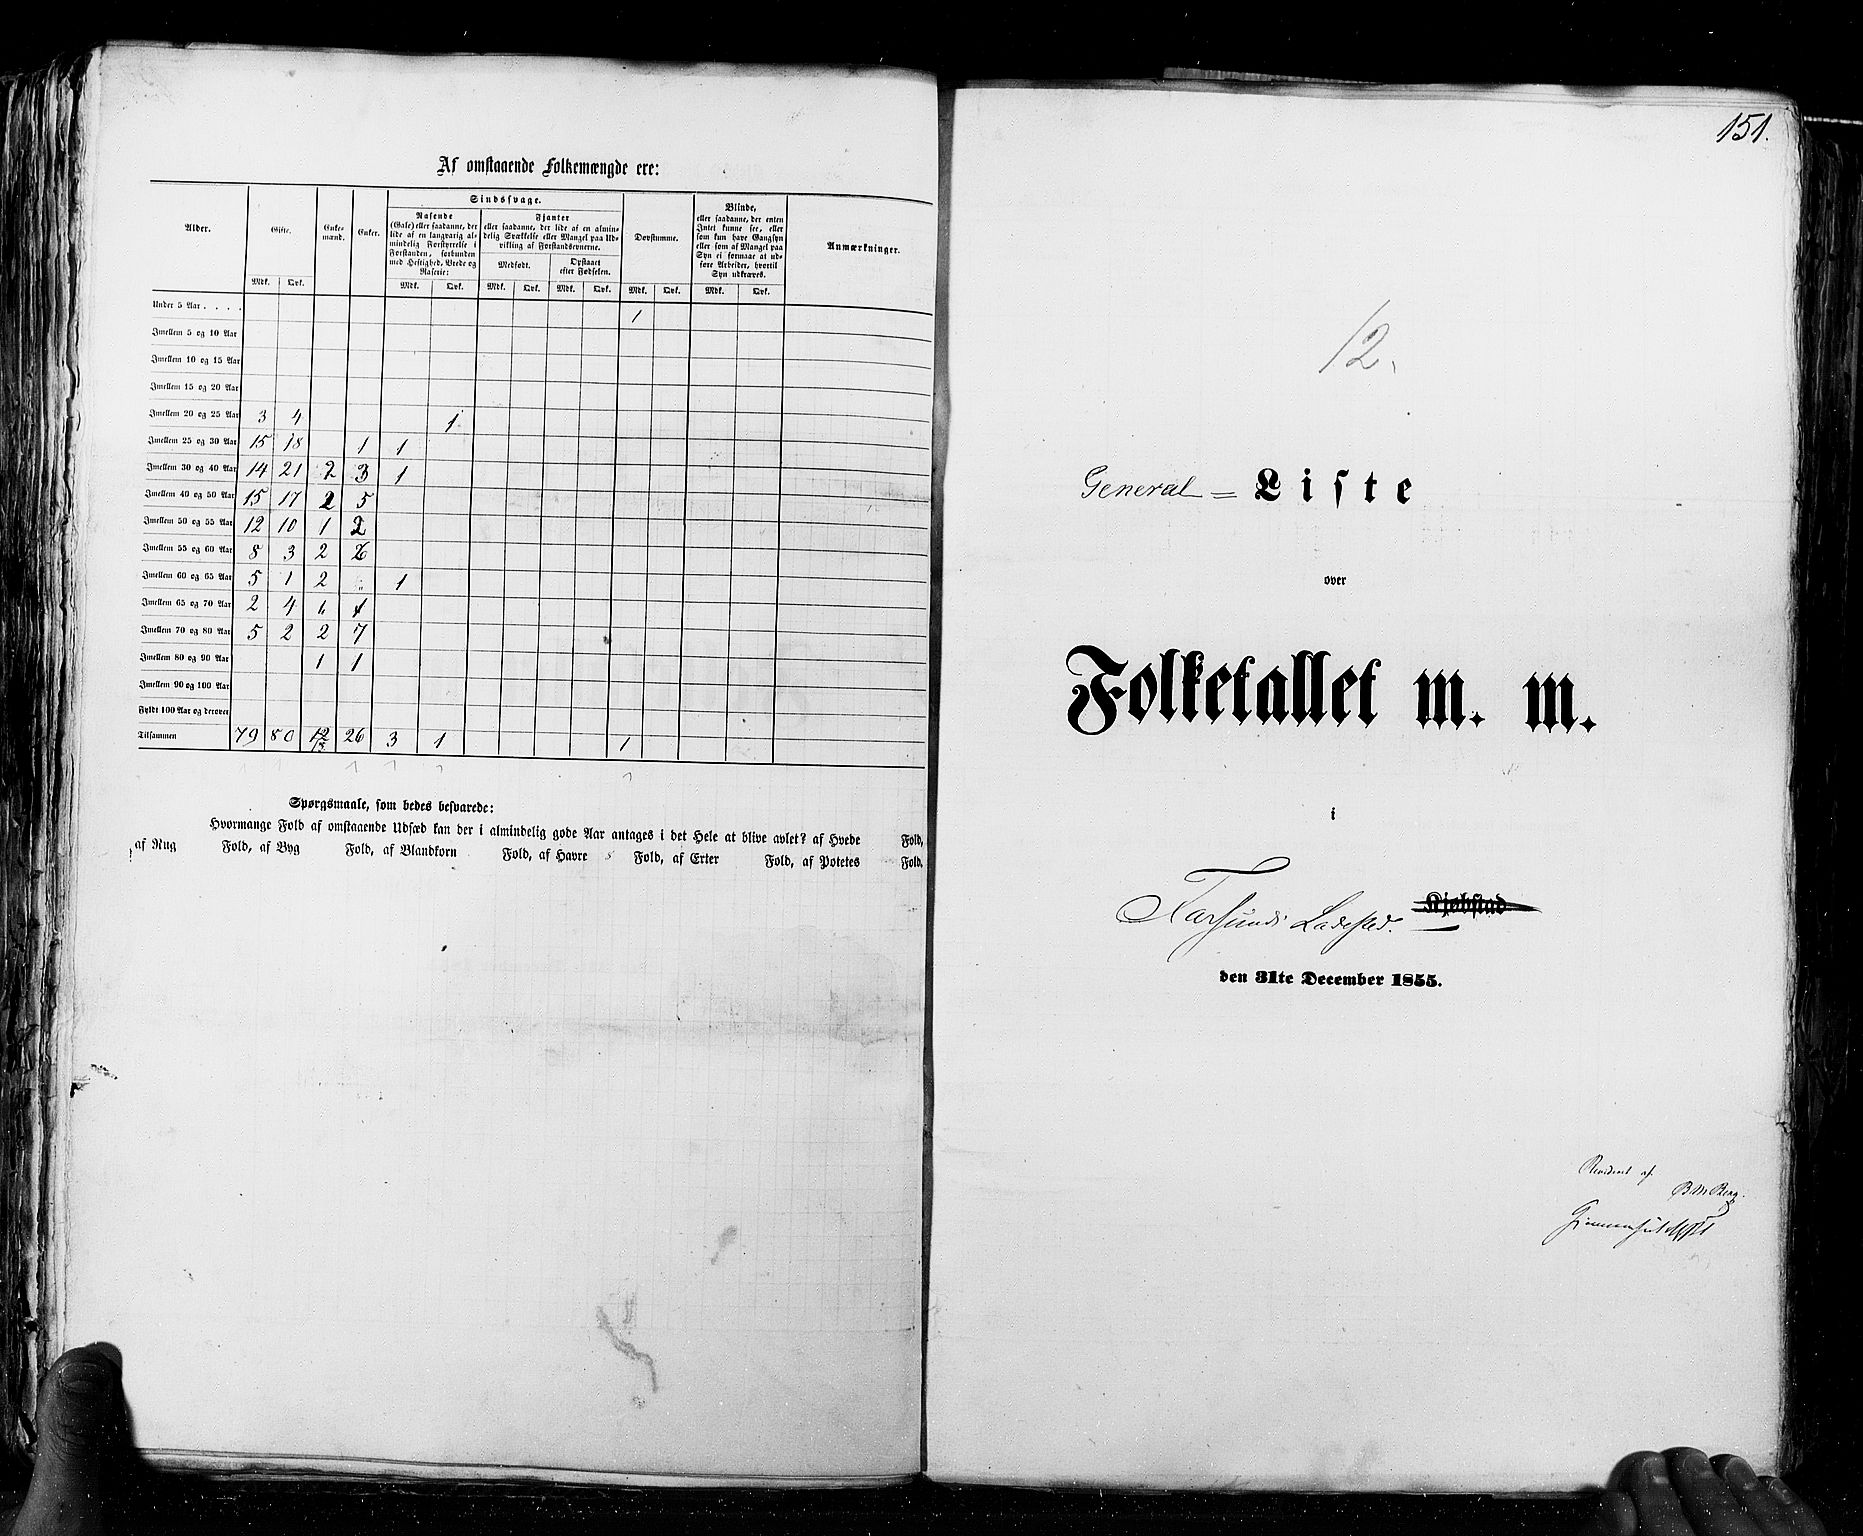 Af omstaaende Folkemængde ere:
Alder. Gifte. Enke-mænd. Enker. Sindssvage. Døvstumme. Blinde, Anmærkninger.
Rasende
(Gale) eller saadanne, der
lide af en langvarig al-
mindelig Forstyrrelse i
Forstanden, forbunden
med Heftighed, Vrede og
Raserie:
Fjanter
eller saadanne, der lide af en almin-
delig Svækkelse eller Mangel paa Ud-
vikling af Forstandsevnerne.
Medfødt. Opstaaet efter Fødselen.
eller saadanne, der enten
Intet kunne see, eller
som kun have Gangsyn
eller som af Mangel paa
Syn ei formaae at ud-
føre Arbeider, hvortil
Syn udkræves.
Mdk. Qvk. Mdk. Qvk. Mdk. Qvk. Mdk. Qvk. Mdk. Qvk. Mdk. Qvk.
Under 5 Aar . . . . 1
Imellem 5 og 10 Aar
Imellem 10 og 15 Aar
Imellem 15 og 20 Aar
Imellem 20 og 25 Aar 3 4 1
Imellem 25 og 30 Aar 15 18 1 1
Imellem 30 og 40 Aar 14 21 2 3 1
Imellem 40 og 50 Aar 15 17 2 5
Imellem 50 og 55 Aar 12 10 1 2
Imellem 55 og 60 Aar 8 3 2
Imellem 60 og 65 Aar 5 1 2 " 1
Imellem 65 og 70 Aar 2 4 " 1
Imellem 70 og 80 Aar 5 2 2 7
Imellem 80 og 90 Aar 1 1
Imellem 90 og 100 Aar
Fyldt 100 Aar og derover
Tilsammen 79 80 12 26 3 1 1
Spørgsmaale, som bedes besvarede:
Hvormange Fold af omstaaende Udsæd kan der i almindelig gode Aar antages i det Hele at blive avlet? af Hvede Fold,
af Rug Fold, af Byg Fold, af Blandkorn Fold, af Havre Fold, af Erter Fold, af Potetes Fold.
151.
12.
General = Liste
over
Folketallet m. m.
i
Farsunds Ladested. Kjøbstad
den 31te December 1855.
Revideret af
B M Berg.